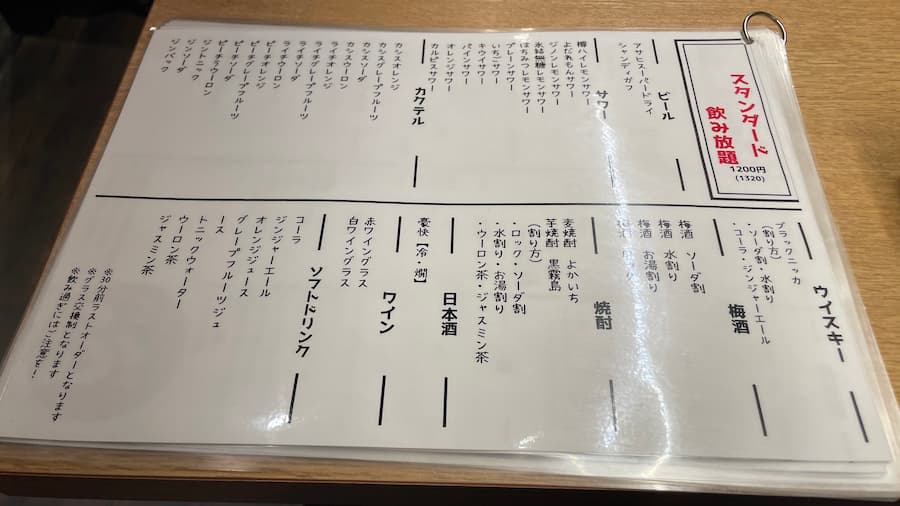 スタンダード
飲み放題
1200円
(1320)
ビール
アサヒスーパードライ
シャンディガフ
サワー
樽ハイレモンサワー
よだれもんサワー
ジノンレモンサワー
氷結無糖レモンサワー
はちみつレモンサワー
プレーンサワー
いちごサワー
キウイサワー
パインサワー
オレンジサワー
カルピスサワー
カクテル
カシスオレンジ
カシスグレープフルーツ
カシスソーダ
カシスウーロン
ライチオレンジ
ライチグレープフルーツ
ライチソーダ
ライチウーロン
ピーチオレンジ
ピーチグレープフルーツ
ピーチソーダ
ピーチウーロン
ジントニック
ジンソーダ
ジンバック
ウイスキー
ブラックニッカ
(割り方)
・ソーダ割・水割り
・コーラ・ジンジャーエール
梅酒
梅酒 ソーダ割
梅酒 水割り
梅酒 お湯割り
梅酒 ロック
焼酎
麦焼酎 よかいち
芋焼酎 黒霧島
(割り方)
・ロック・ソーダ割
・水割り・お湯割り
・ウーロン茶・ジャスミン茶
日本酒
豪快【冷・燗】
ワイン
赤ワイングラス
白ワイングラス
ソフトドリンク
コーラ
ジンジャーエール
オレンジジュース
グレープフルーツジュ
ース
トニックウォーター
ウーロン茶
ジャスミン茶
※30分前ラストオーダーとなります
※グラス交換制となります
※飲み過ぎにはご注意を!